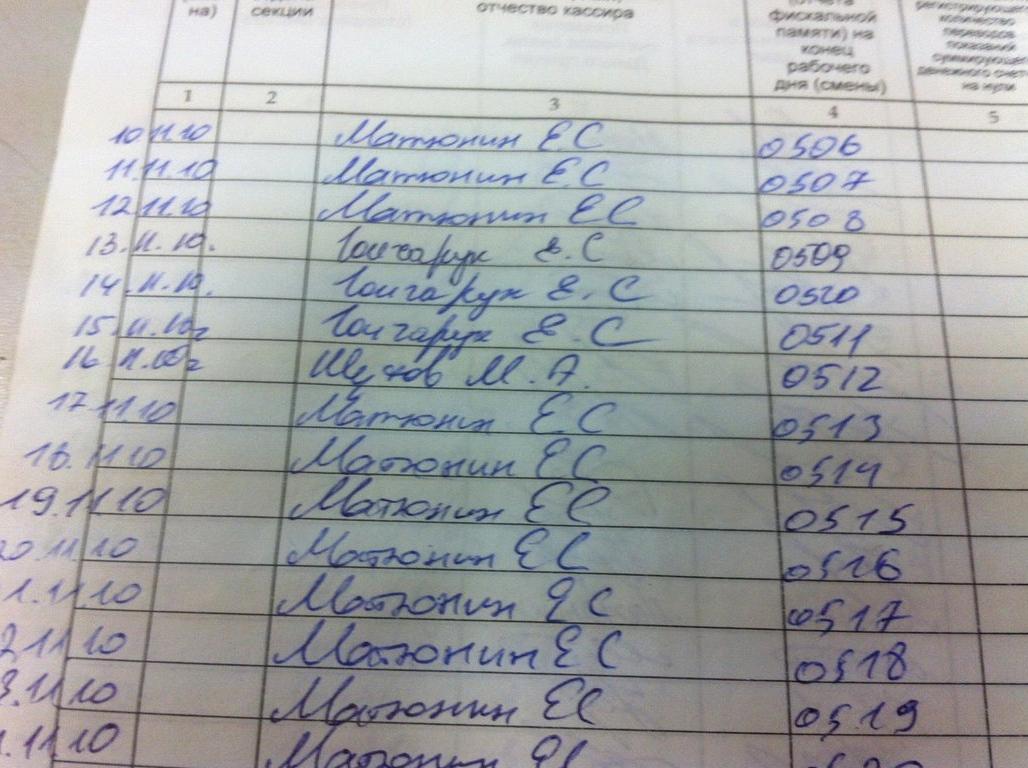 на) секции отчество кассира (отчета фискальной памяти) на конец рабочего дня (смены) регистрирующего количество переводов показаний суммирующего денежного счетчика на нули
1 2 3 4 5
10 11.10 Матюнин Е С 0506
11.11.10 Матюнин Е.С 0507
12 11.10 Матюнин ЕС 0508
13.11.10. Гончарук Е.С 0509
14.11.10. Гончарук Е.С 0510
15.11.10г Гончарук Е.С 0511
16 11.10г М.А. 0512
17 11.10 Матюнин Е С 0513
18.11 10 Матюнин ЕС 0514
19.11 10 Матюнин ЕС 0515
20.11 10 Матюнин ЕС 0516
1.11 10 Матюнин ЕС 0517
2 11 10 Матюнин Е С 0518
3.11 10 Матюнин ЕС 0519
.11 10 Матюнин ЕС